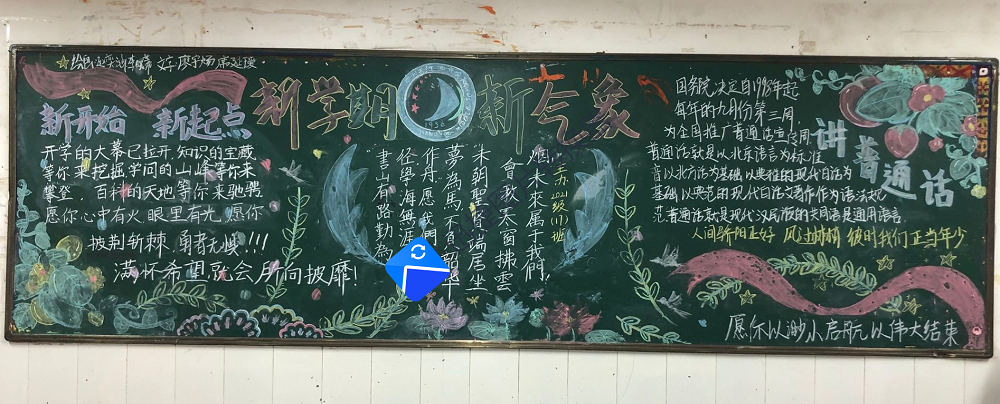 新学期
新气象
1956
新开始 新起点
开学的大幕已拉开,知识的宝藏
等你来挖掘学问的山峰等你来
攀登,百科的天地等你来驰骋
愿你心中有火,眼里有光,愿你
披荆斩棘,勇者无惧!!!
满怀希望就会所向披靡!
未来属于我們
會教天窗拂雲
未朝聖賢端居坐
夢為馬不負韶华
作舟愿我們
怪學海無涯
書山有路勤為
国务院决定自1998年起
每年的九月份第三周
为全国推广普通话宣传周
普通话就是以北京语言为标准
普以北方话为基础,以典范的现代白话为
基础,以典范的现代白话文著作作为语法规
范普通话就是现代汉民族的共同语是通用语言
讲普通话
人间骄阳正好 风过林梢 彼时我们正当年少
愿你以渺小启航,以伟大结束